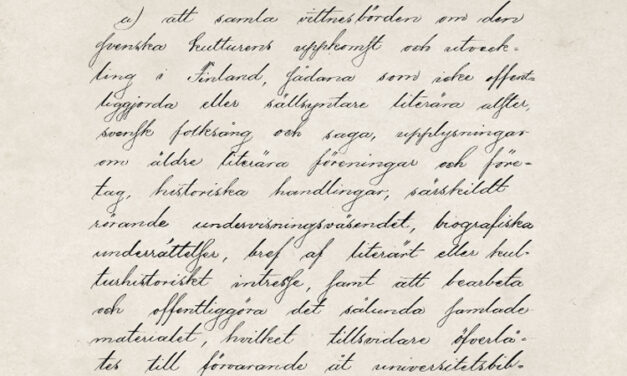 a) att samla vittnesbörden om den
svenska kulturens uppkomst och utveck-
ling i Finland, sådana som icke offent-
liggjorda eller sällsyntare literära alster,
svensk folksång och saga, upplysningar
om äldre literära föreningar och före-
tag, historiska handlingar, särskildt
rörande undervisningsväsendet, biografiska
underrättelser, bref af literärt eller kul-
turhistoriskt intresse, samt att bearbeta
och offentliggöra det sålunda samlade
materialet, hvilket tillsvidare öfverlå-
tes till förvarande åt universitetsbib-